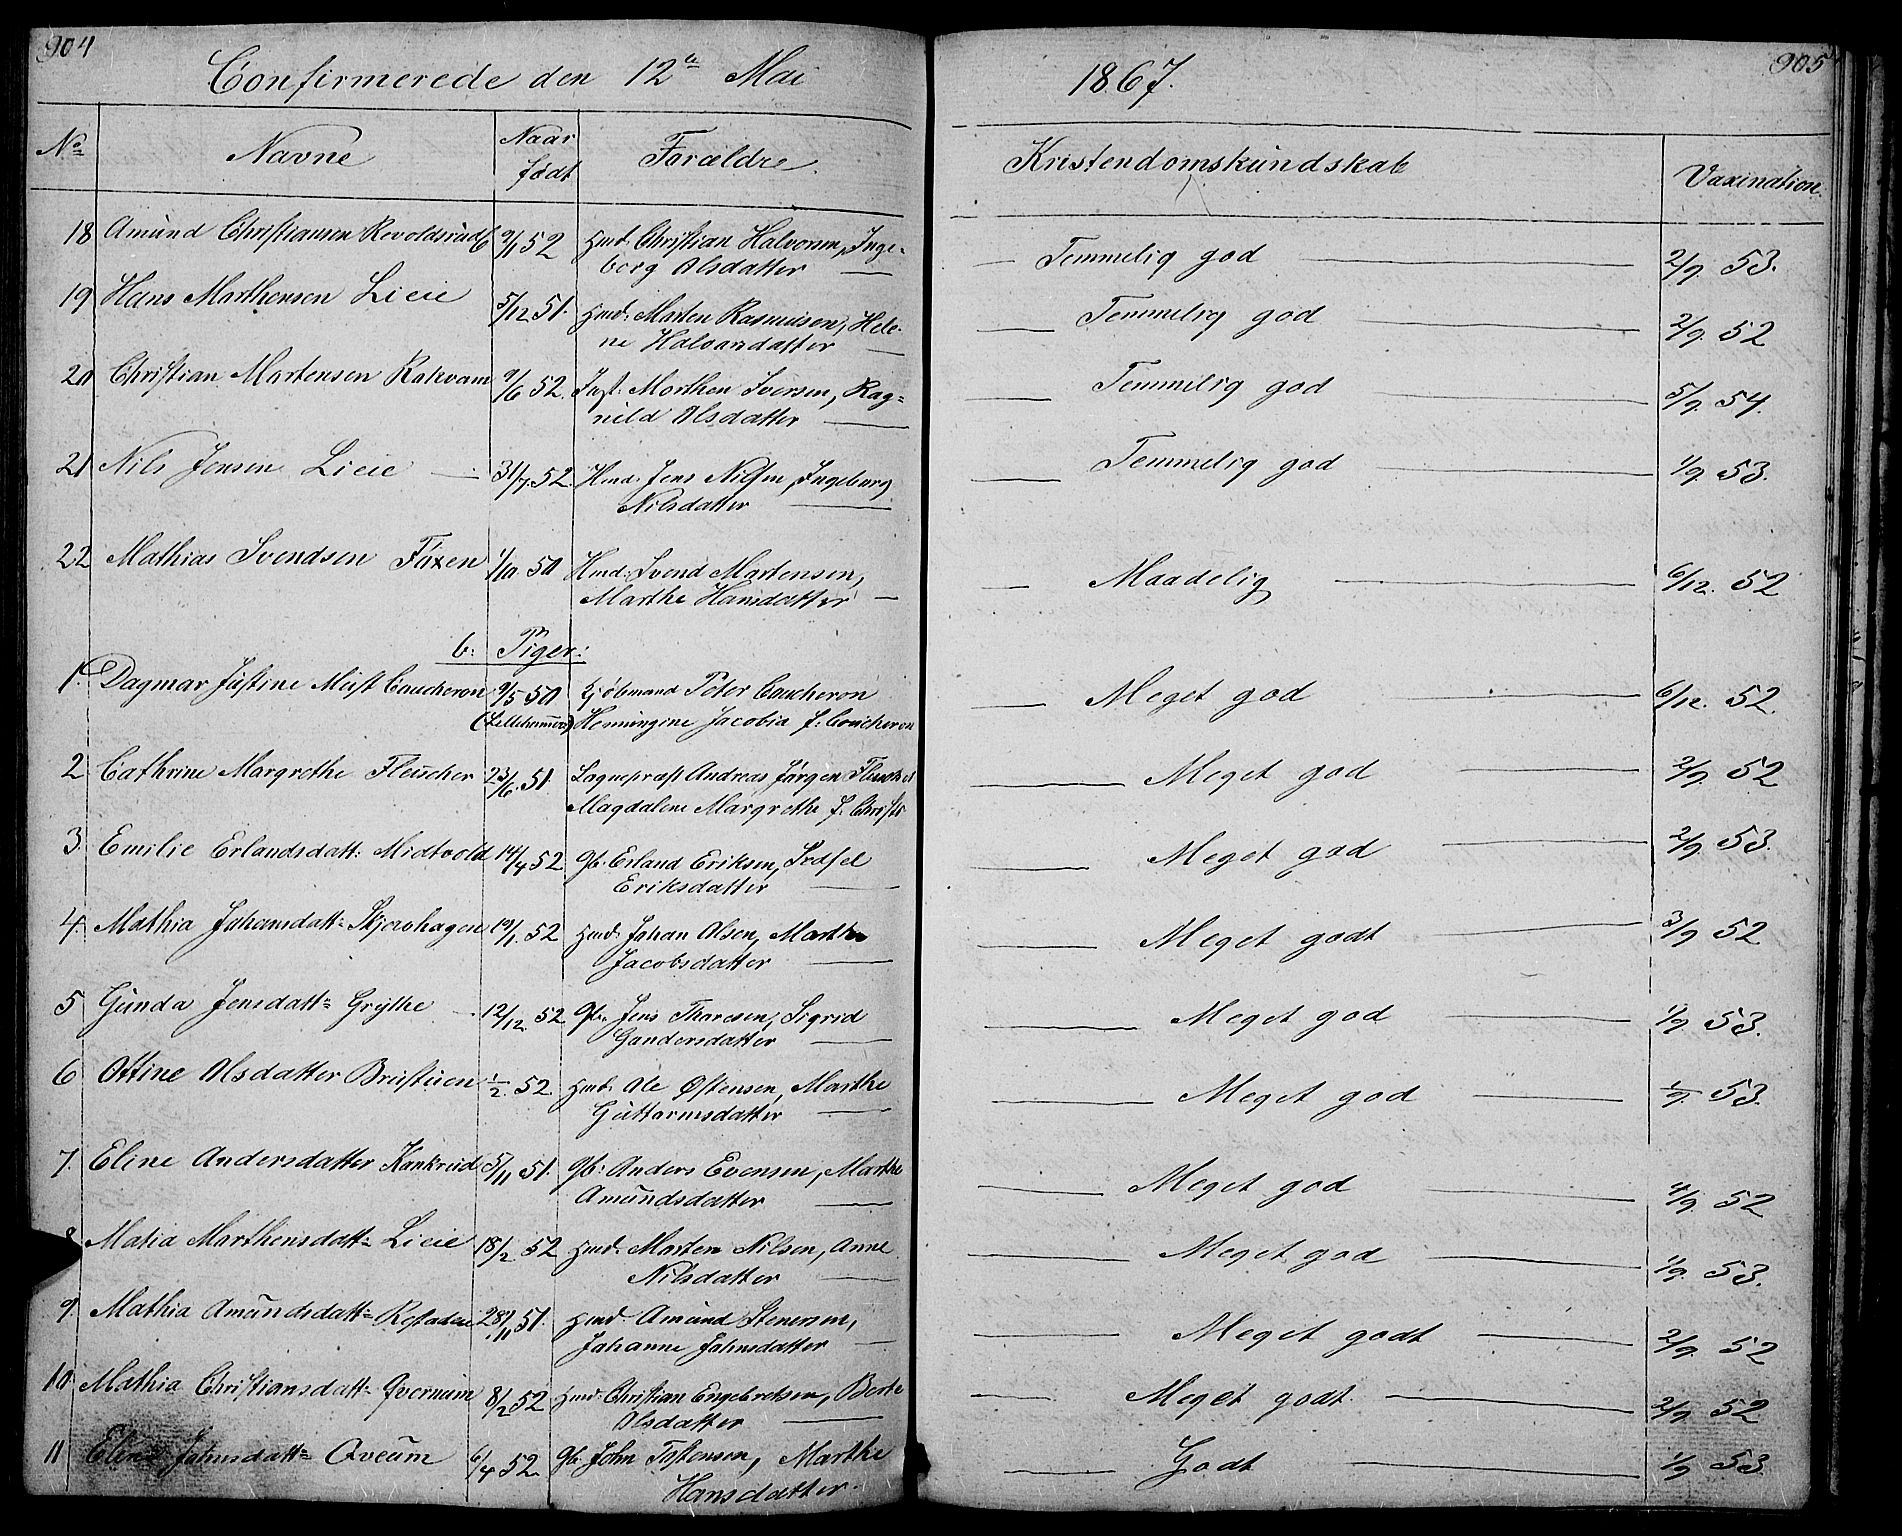 904
905
Confirmerede den 12te Mai 1867.
No Navne Naar født Forældre. Kristendomskundskab Vaxination
18 Amund Christiansen Revoldsrud 9/1 52 Hmd. Christian Halvorsen, Inge-
borg Olsdatter — Temmelig god — 2/9 53.
19 Hans Marthensen Lieie 5/12 51. Hmd: Marten Rasmusen, Hele-
ne Halvorsdatter — Temmelig god — 2/9. 52
20 Christian Martensen Rakvam 9/6 52. Inst: Morthen Iversen, Rag-
nild Olsdatter — Temmelig god — 5/9. 54.
21 Nils Jensen Lieie — 31/7. 52. Hmd. Jens Nilsen, Ingeborg
Nilsdatter — Temmelig god — 1/9. 53.
22 Mathias Svendsen Faxen 1/10 50 Hmd: Svend Martensen,
Marthe Hansdatter — Maadelig — 6/12. 52
b: Piger:
1. Dagmar Justine Marie Coucheron 9/5 50 Kjøbmand Peter Coucheron
(Lillehammer) Henningine Jacobia f: Coucheron — Meget god — 6/12. 52.
2 Cathrine Margrethe Fleischer 23/6. 51. Sognepræst Andreas Jørgen Fleischer
Magdalene Margrethe f. Christie — Meget god — 2/9. 52
3. Emilie Erlandsdatt: Midtvold 14/4 52. Gb. Erland Eriksen, Sidsel
Eriksdatter — Meget god — 2/9. 53.
4. Mathia Johansdatt= Skjæshagen 10/1. 52 Hmd. Johan Olsen, Marthe
Jacobsdatter — Meget godt — 3/9 52
5 Gunda Jensdatt= Grythe — 12/12. 52 Gb. Jens Thoresen, Sigrid
Gundersdatter — Meget god — 1/9. 53.
6 Ottine Olsdatter Brustuen 1/2. 52. Hmd. Ole Østensen, Marthe
Guttormsdatter — Meget god — 1/9. 53.
7. Eline Andersdatter Kankrud 5/11 51. Gb: Anders Evensen, Marthe
Amundsdatter — Meget god — 4/9. 52
8 Matia Marthensdatt= Lieie 18/2 52 Hmd. Morten Nilsen, Anne
Nilsdatter — Meget god — 1/9. 53.
9. Mathia Amundsdatt= 28/11 51. Hmd. Amund Stenersen,
Johanne Johnsdatter — Meget godt — 2/9. 52
10 Mathia Christiansdatt= Qvernum 8/2 52 Hmd. Christian Engebretsen, Berte
Olsdatter — Meget godt. — 2/9 52
11 Eline Johnsdatt= Qveum 6/4 52. Gb. John Tostensen, Marthe
Hansdatter. — Godt — 1/9 53